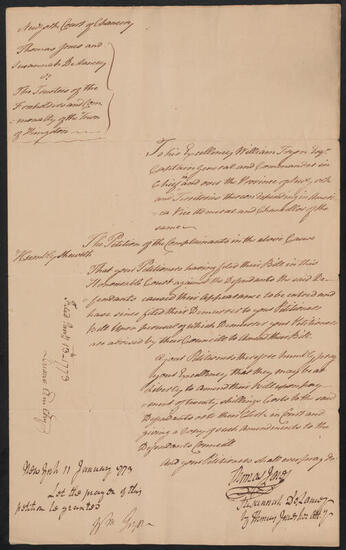 New York Court of Chancery
Thomas Jones and
Susannah DeLancey
vs
The Trustees of the
Freeholders and Com-
monalty of the Town
of Huntington
To his Excellency William Tryon Esqr
Captain General and Commander in
Chief in and over the Province of New York
and Territories thereon depending in Ameri-
ca Vice Admiral and Chancellor of the
same
The Petition of the Complainants in the above Cause
Humbly Sheweth
That your Petitioners having filed their Bill in this
Honourable Court against the Defendants the said De-
fendants caused their Appearance to be entered and
have since filed their Demurrer to your Petitioners
Bill upon perusal of which Demurrer your Petitioners
are advised by their Council to Amend their Bill
Your Petitioners therefore humbly pray
your Excellency that they may be at
liberty to amend their Bill upon pay-
ment of twenty shillings Costs to the said
Defendants or their Clerk in Court and
giving a Copy of such amendments to the
Defendants Council
And your Petitioners shall ever pray &c
Thomas Jones
Susannah DeLancey
by Thomas Jones her Atty
Filed Jany 13th 1773
New York 11 January 1773
Let the prayer of this
petition be granted
Wm Tryon